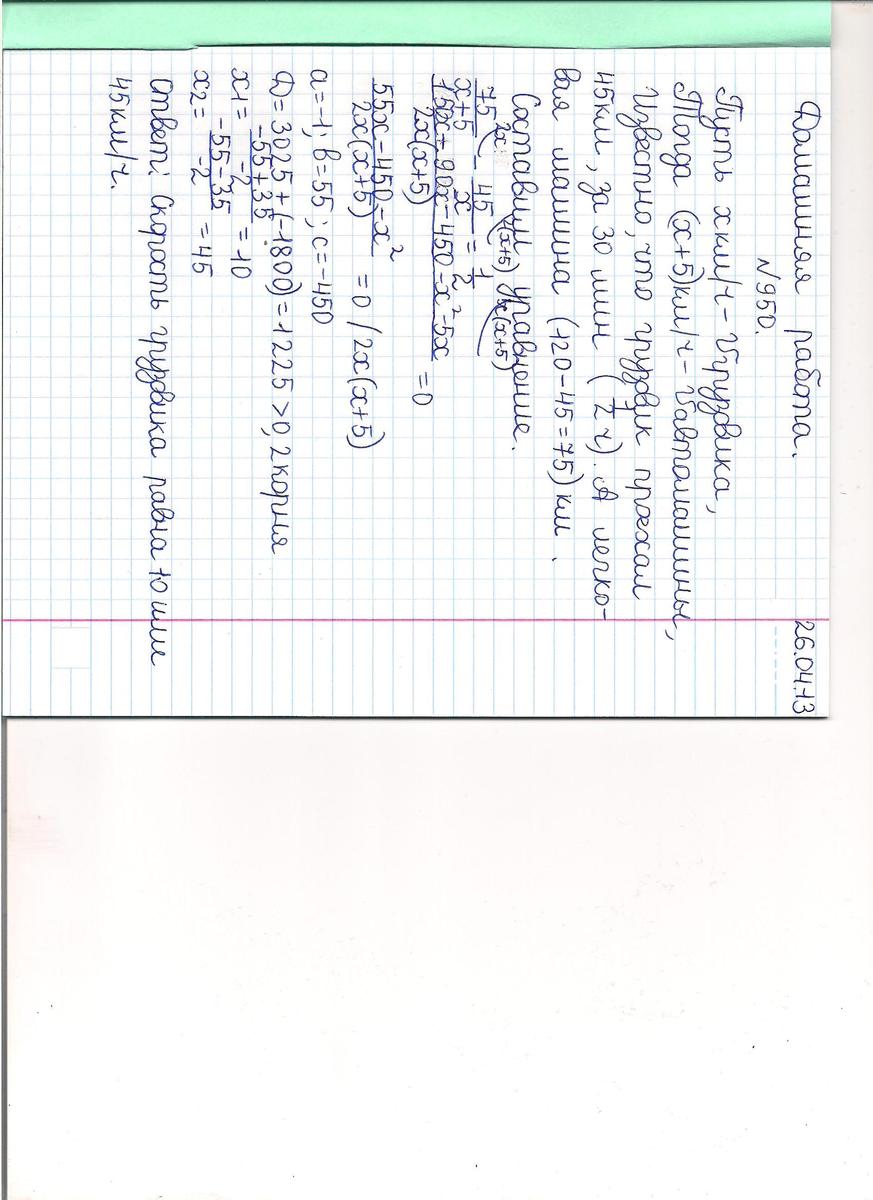 Домашняя работа. 26.04.13
№950.
Пусть x км/ч - Vгрузовика,
Тогда (x+5)км/ч - Vавтомашины,
Известно, что грузовик проехал
45км, за 30 мин (1/2 ч). А легко-
вая машина (120-45=75) км.
Составим уравнение.
75^(2x/x+5 - 45^(2(x+5)/x = 1^(x(x+5)/2
150x+90x-450-x²-5x/2x(x+5) = 0
55x-450-x²/2x(x+5) = 0 /2x(x+5)
a=-1; b=55; c=-450
D=3025+(-1800)=1225>0, 2 корня
x1= -55+35/-2 =10
x2= -55-35/-2 =45
Ответ: Скорость грузовика равна 10 или
45км/ч.